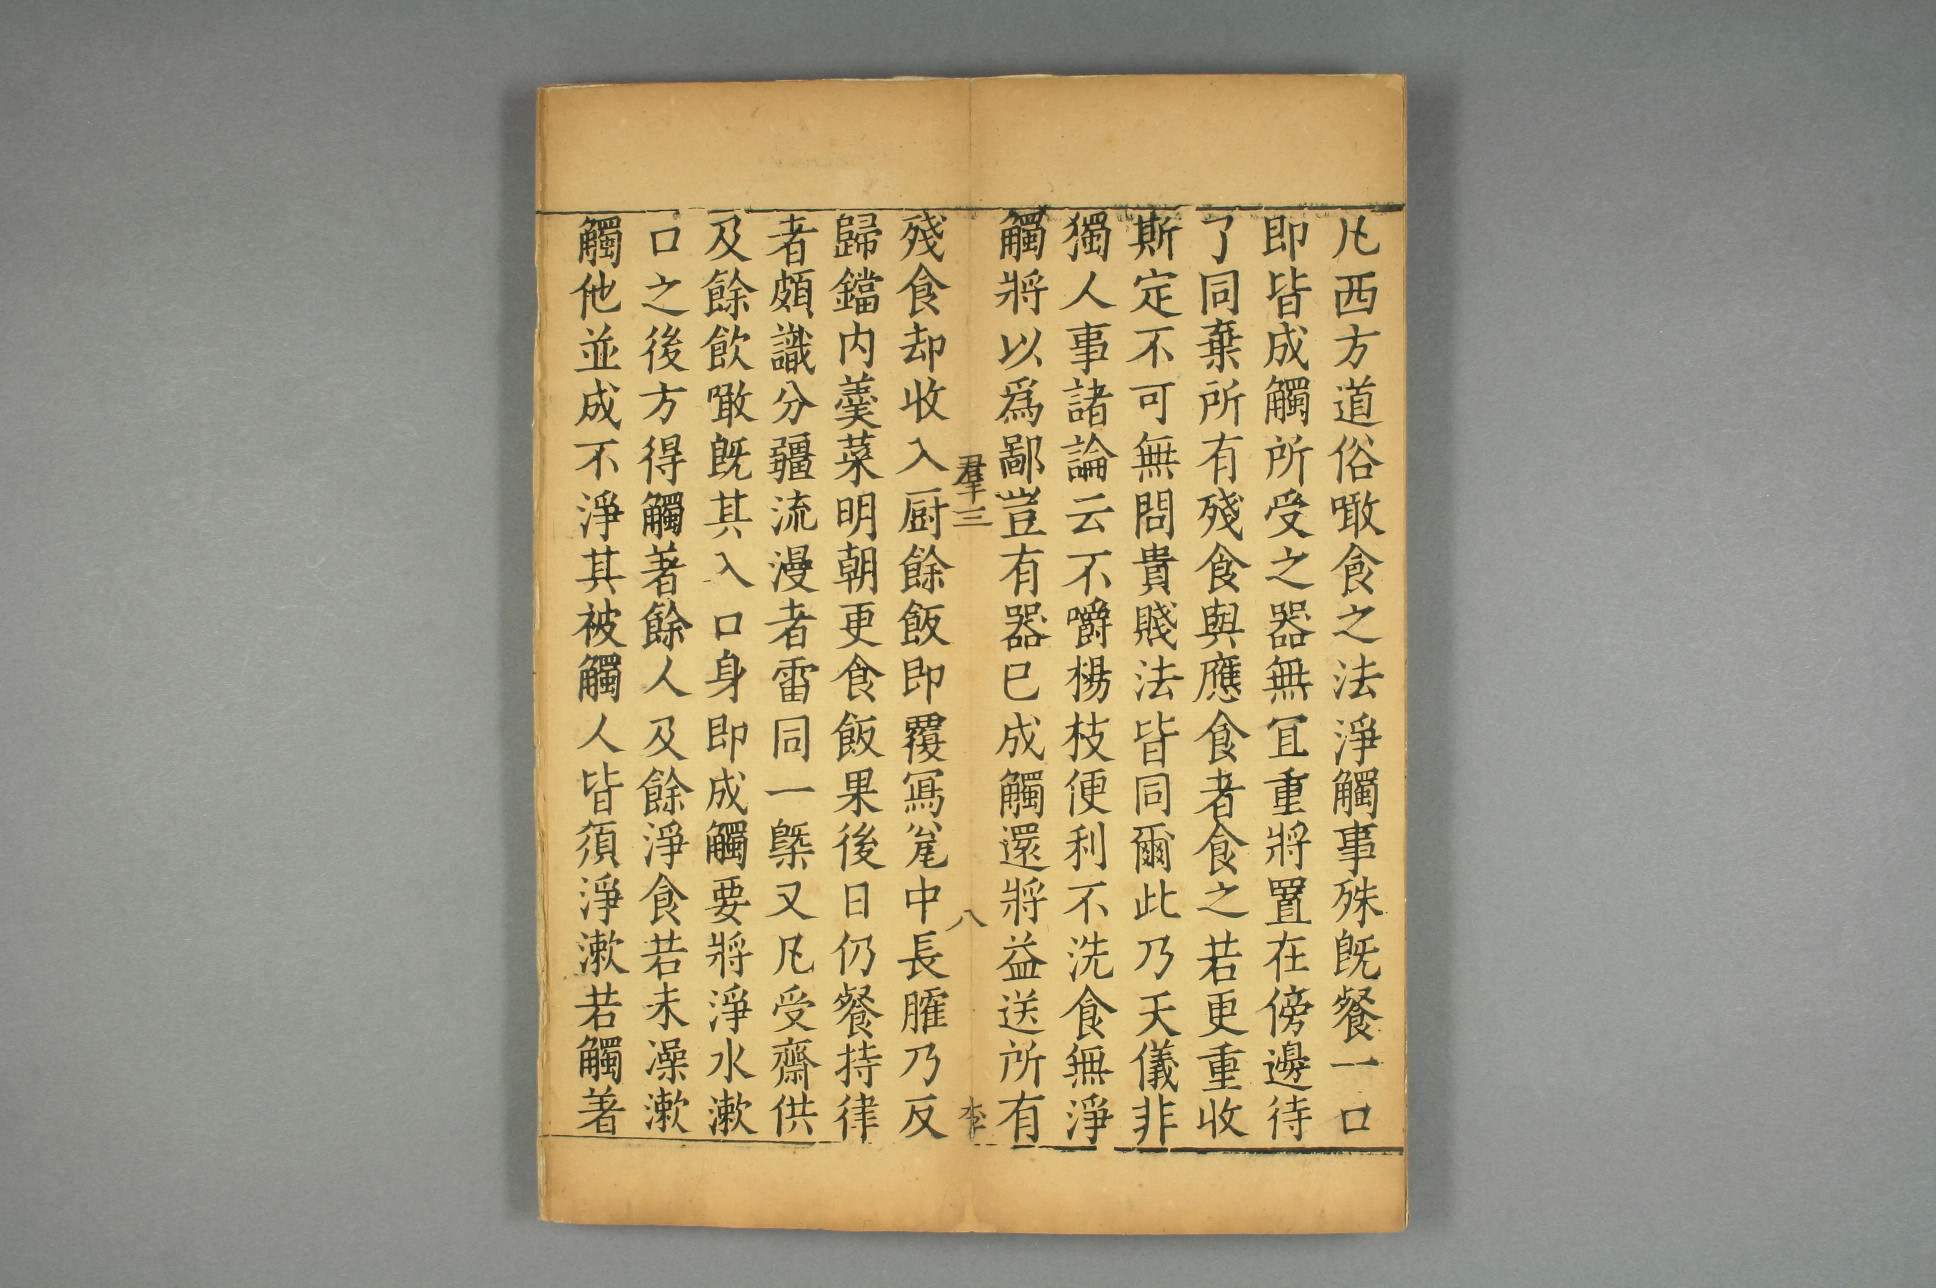 凡西方道俗噉食之法淨觸事殊旣餐一口
即皆成觸所受之器無冝重將置在傍邊待
了同棄所有殘食與應食者食之若更重收
斯定不可無問貴賤法皆同爾此乃天儀非
獨人事諸論云不嚼楊枝便利不洗食無淨
觸將以爲鄙豈有器已成觸還將益送所有
羣三 八 李
殘食却收入厨餘飯即覆冩瓮中長臛乃反
歸鐺内羹菜明朝更食飯果後日仍餐持律
者頗識分疆流漫者雷同一槩又凡受齋供
及餘飲噉旣其入口身即成觸要將淨水漱
口之後方得觸著餘人及餘淨食若未澡漱
觸他並成不淨其被觸人皆須淨漱若觸著